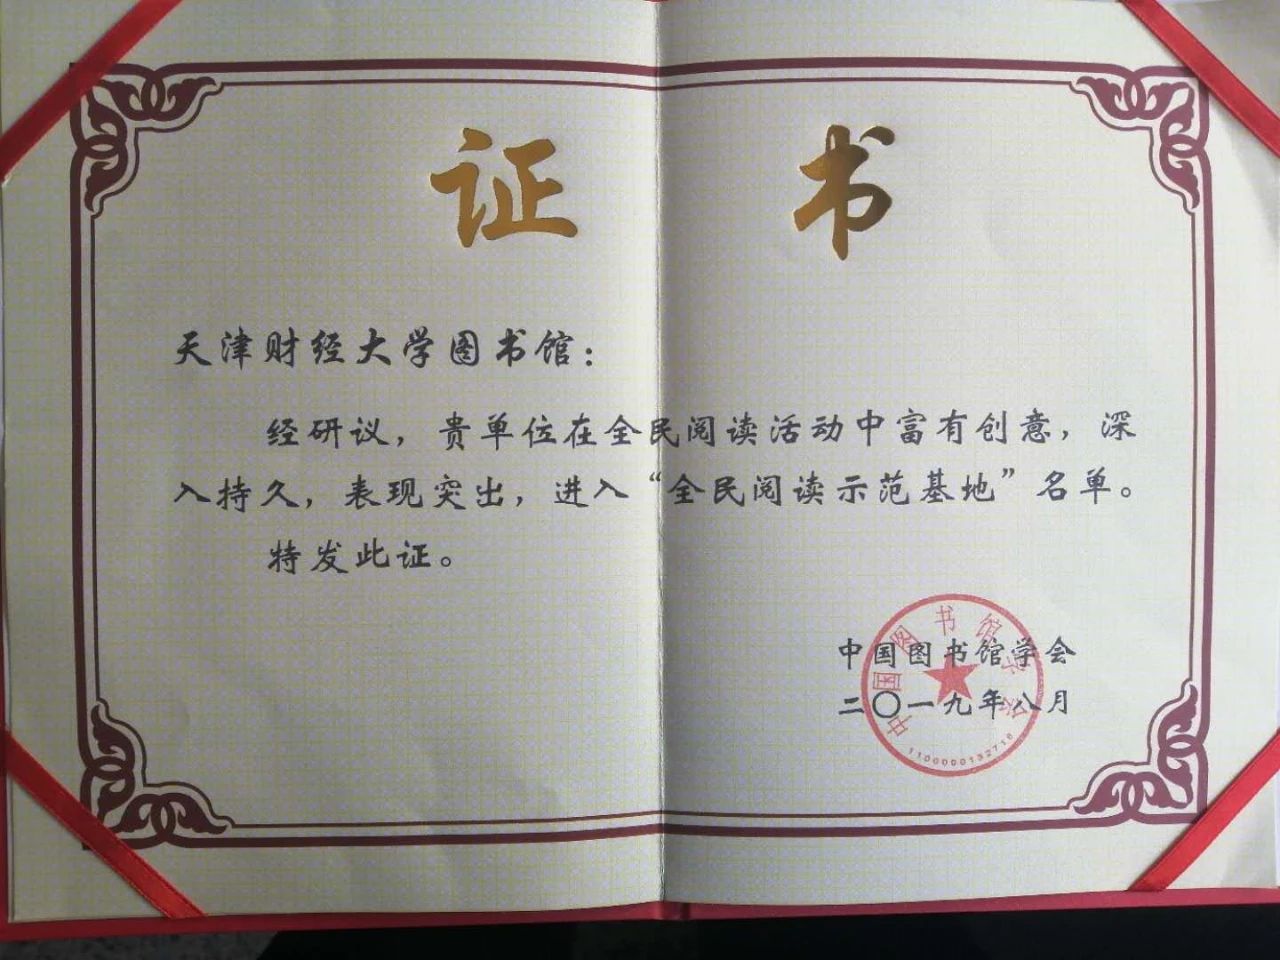 证书
天津财经大学图书馆：
经研议，贵单位在全民阅读活动中富有创意，深
入持久，表现突出，进入“全民阅读示范基地”名单。
特发此证。
中国图书馆学会
二〇一九年八月
中国图书馆学会